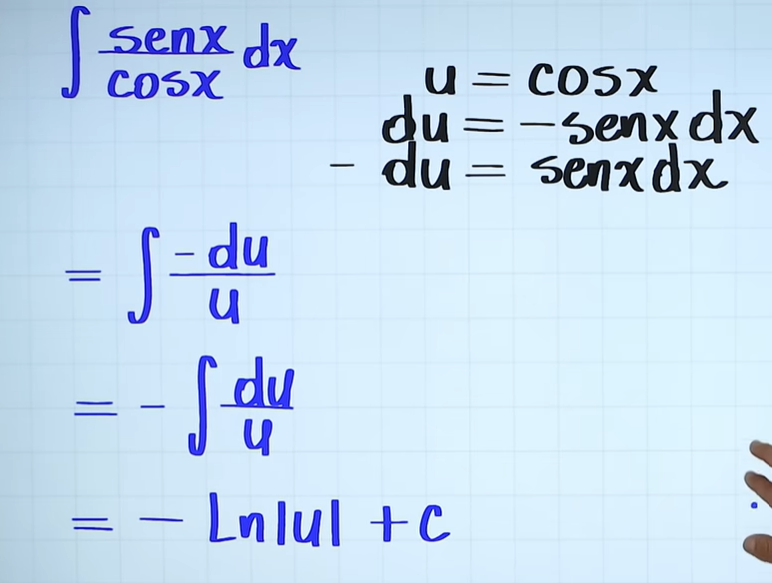 ∫ senx/cosx dx
u = cosx
du = -senx dx
- du = senx dx
= ∫ -du/u
= - ∫ du/u
= - Ln|u| + c